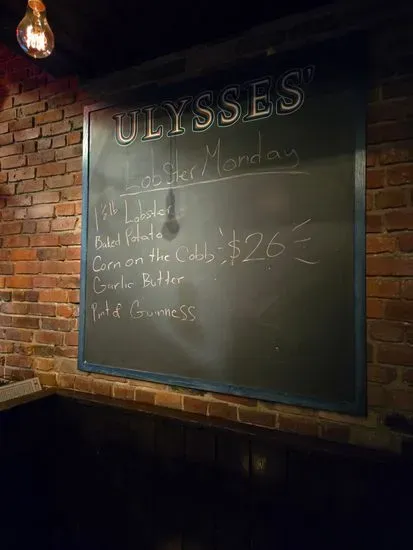 ULYSSES'
Lobster Monday
1½lb Lobster
Baked Potato
Corn on the Cobb
$26
Garlic Butter
Pint of Guinness